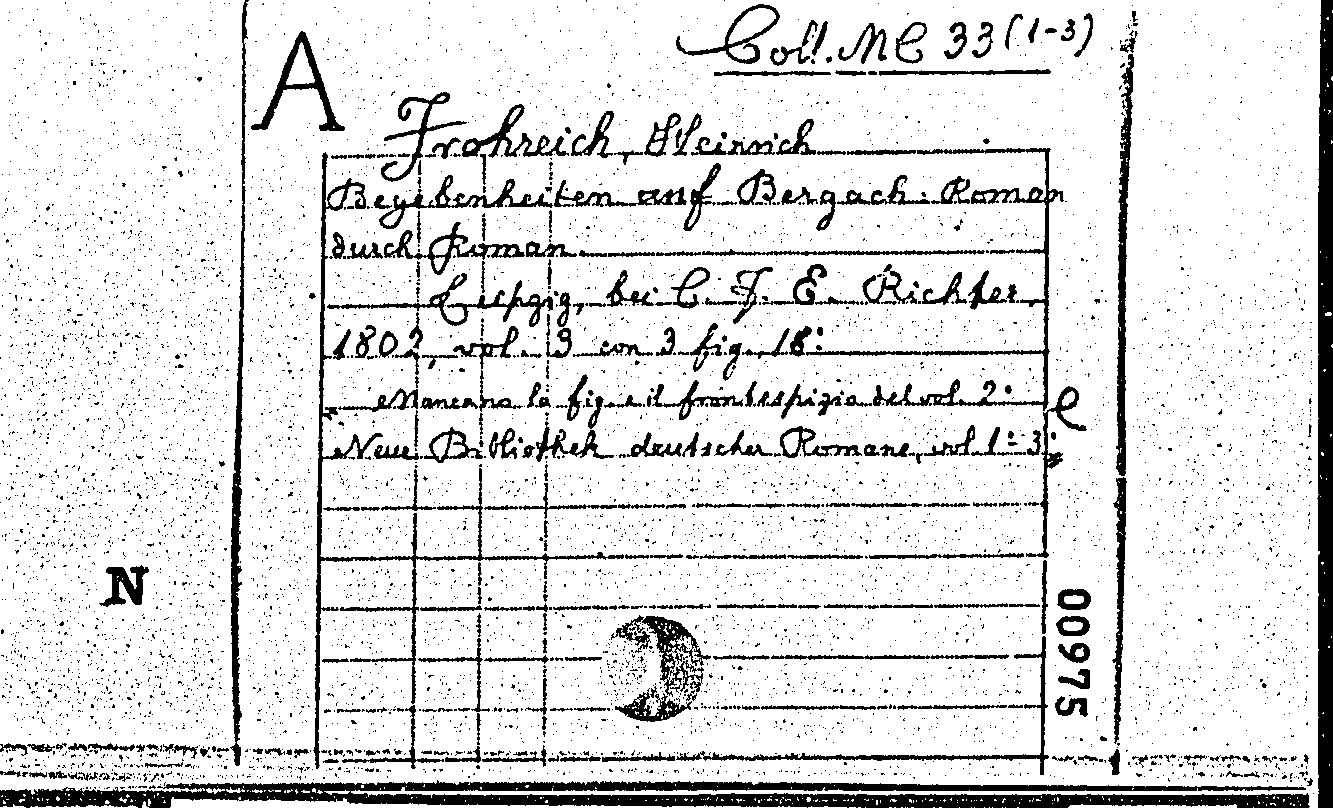 Coll. MC 33 (1-3)
A
Frohreich, Heinrich
Begebenheiten auf Bergach. Roman
durch Roman.
Leipzig, bei C. F. E. Richter,
1802, vol. 3 con 3 fig., 18:
Mancano la fig. e il frontespizio del vol. 2°
Neue Bibliothek deutscher Romane, vol. 1°-3°
N
00975